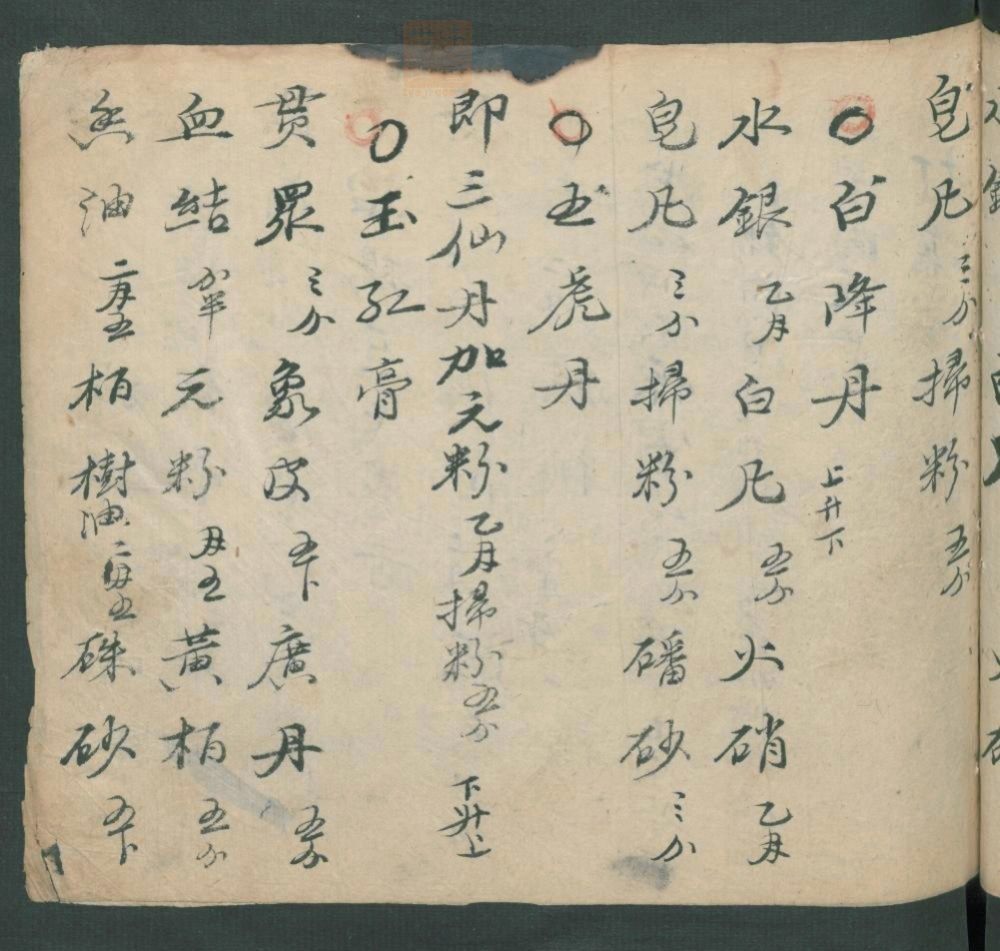 皂凡三分掃粉五分
白降丹上升下
水銀乙月白凡五分火硝乙月
皂凡三分掃粉五分磻砂三分
五虎丹
即三仙丹加元粉乙月掃粉五分下升上
玉紅膏
贯眾三分象皮五卜廣丹五分
血結分半元粉月五黃柏五分
油二月五柏樹油二月五硃砂五卜